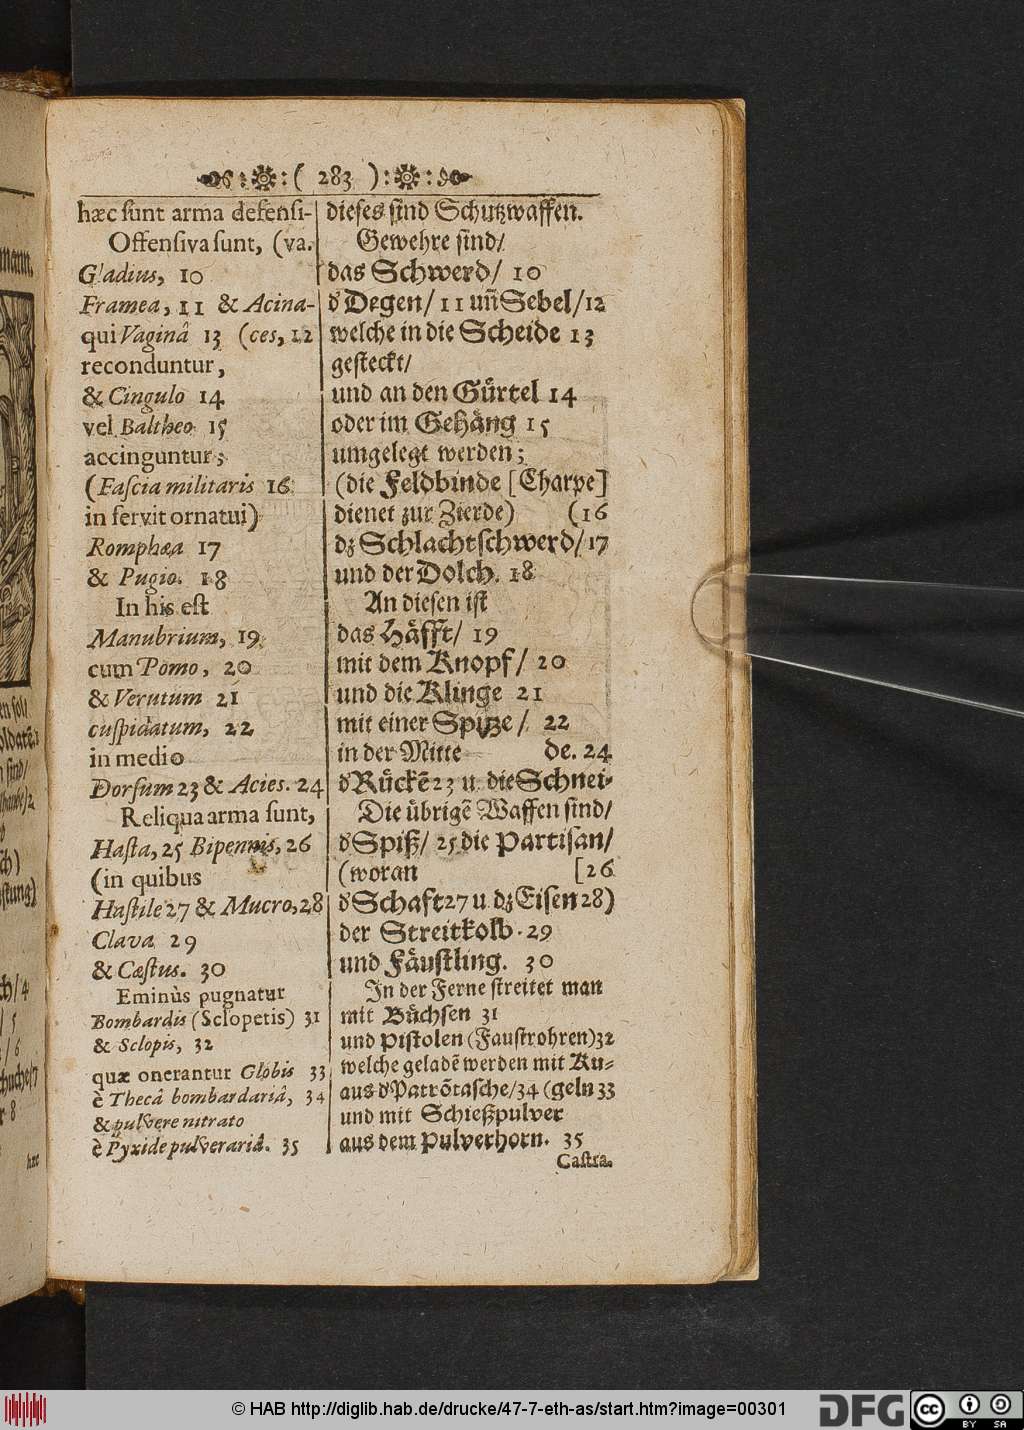 :( 283 ):
hæc sunt arma defensi-
Offensiva sunt, (va.
Gladius, 10
Framea, 11 & Acina-
qui Vaginâ 13 (ces, 12
reconduntur,
& Cingulo 14
vel Baltheo 15
accinguntur;
(Fascia militaris 16
inservit ornatui)
Romphæa 17
& Pugio. 18
In his est
Manubrium, 19
cum Pomo, 20
& Verutum 21
cuspidatum, 22
in medio
Dorsum 23 & Acies. 24
Reliqua arma sunt,
Hasta, 25 Bipennis, 26
(in quibus
Hastile 27 & Mucro, 28
Clava 29
& Cæstus. 30
Eminùs pugnatur
Bombardis (Sclopetis) 31
& Sclopis, 32
quæ onerantur Globis 33
è Thecâ bombardariâ, 34
& pulvere nitrato
è Pyxide pulverariâ. 35
dieses sind Schutzwaffen.
Gewehre sind/
das Schwerd/ 10
d' Degen/ 11 uñ Sebel/ 12
welche in die Scheide 13
gesteckt/
und an den Gürtel 14
oder im Gehäng 15
umgelegt werden;
(die Feldbinde [Charpe]
dienet zur Zierde) (16
dz Schlachtschwerd/ 17
und der Dolch. 18
An diesen ist
das Häfft/ 19
mit dem Knopf/ 20
und die Klinge 21
mit einer Spitze/ 22
in der Mitte de. 24
d' Rückẽ 23 u. die Schnei-
Die übrigẽ Waffen sind/
d' Spiß/ 25 die Partisan/
(woran [26
d' Schaft 27 u. dz Eisen 28)
der Streitkolb. 29
und Fäustling. 30
In der Ferne streitet man
mit Büchsen 31
und Pistolen (Faustrohren) 32
welche geladẽ werden mit Ku-
aus d' Patrõtasche/ 34 (geln 33
und mit Schießpulver
aus dem Pulverhorn. 35
Castra.
© HAB http://diglib.hab.de/drucke/47-7-eth-as/start.htm?image=00301
DFG
cc
BY SA